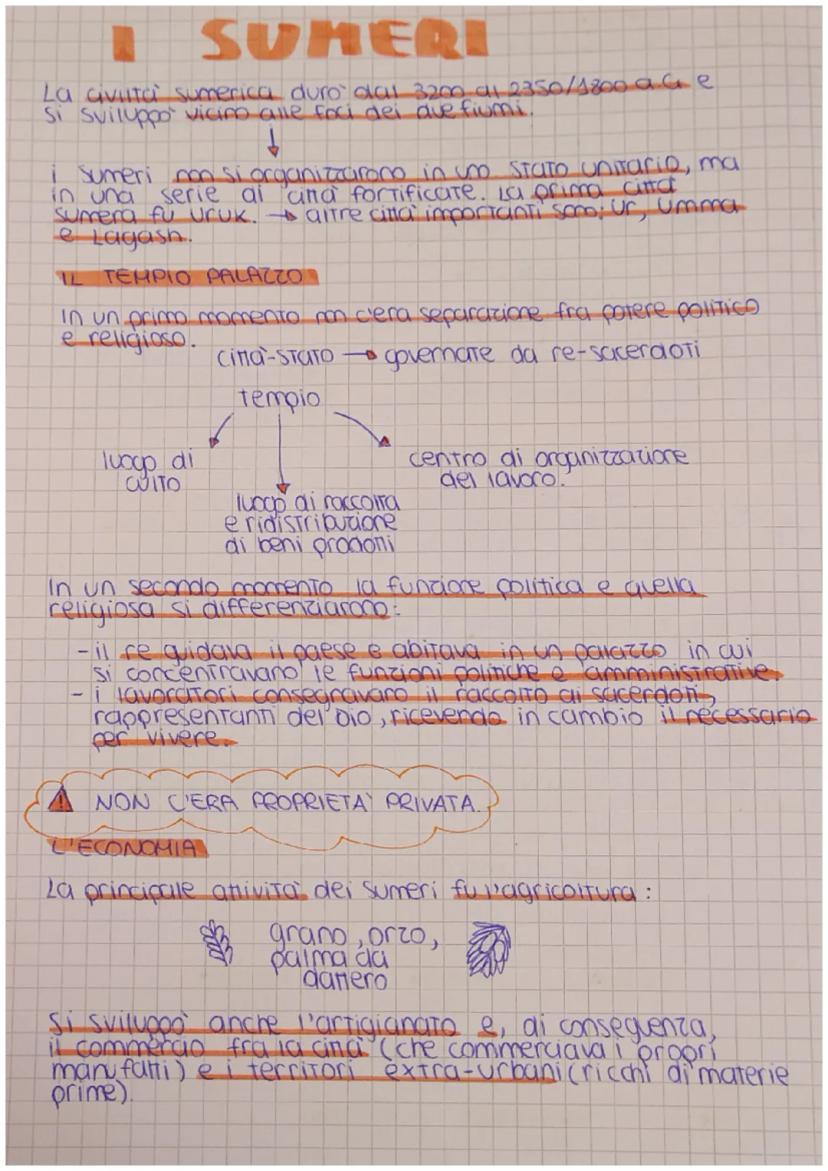 I SUMERI
La civiltà sumerica durò dal 3200 al 2350/1800 a.C. e
si sviluppò vicino alle foci dei due fiumi.
i sumeri non si organizzarono in uno stato unitario, ma
in una serie di città fortificate. La prima città
sumera fu Uruk. → altre città importanti sono; Ur, Umma
e Lagash.
IL TEMPIO PALAZZO
In un primo momento non c'era separazione fra potere politico
e religioso.
città-stato → governate da re-sacerdoti
tempio
luogo di
culto
luogo di raccolta
e ridistribuzione
di beni prodotti
centro di organizzazione
del lavoro.
In un secondo momento la funzione politica e quella
religiosa si differenziarono:
- il re guidava il paese e abitava in un palazzo in cui
si concentravano le funzioni politiche e amministrative.
- i lavoratori consegnavano il raccolto ai sacerdoti,
rappresentanti del Dio, ricevendo in cambio il necessario
per vivere.
NON C'ERA PROPRIETA' PRIVATA.
L'ECONOMIA
La principale attività dei sumeri fu l'agricoltura:
grano, orzo,
palma da
dattero
Si sviluppò anche l'artigianato e, di conseguenza,
il commercio fra la città (che commerciava i propri
manufatti) e i territori extra-urbani (ricchi di materie
prime).